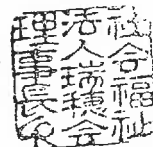 社会福祉
法人瑞穂会
理事長印